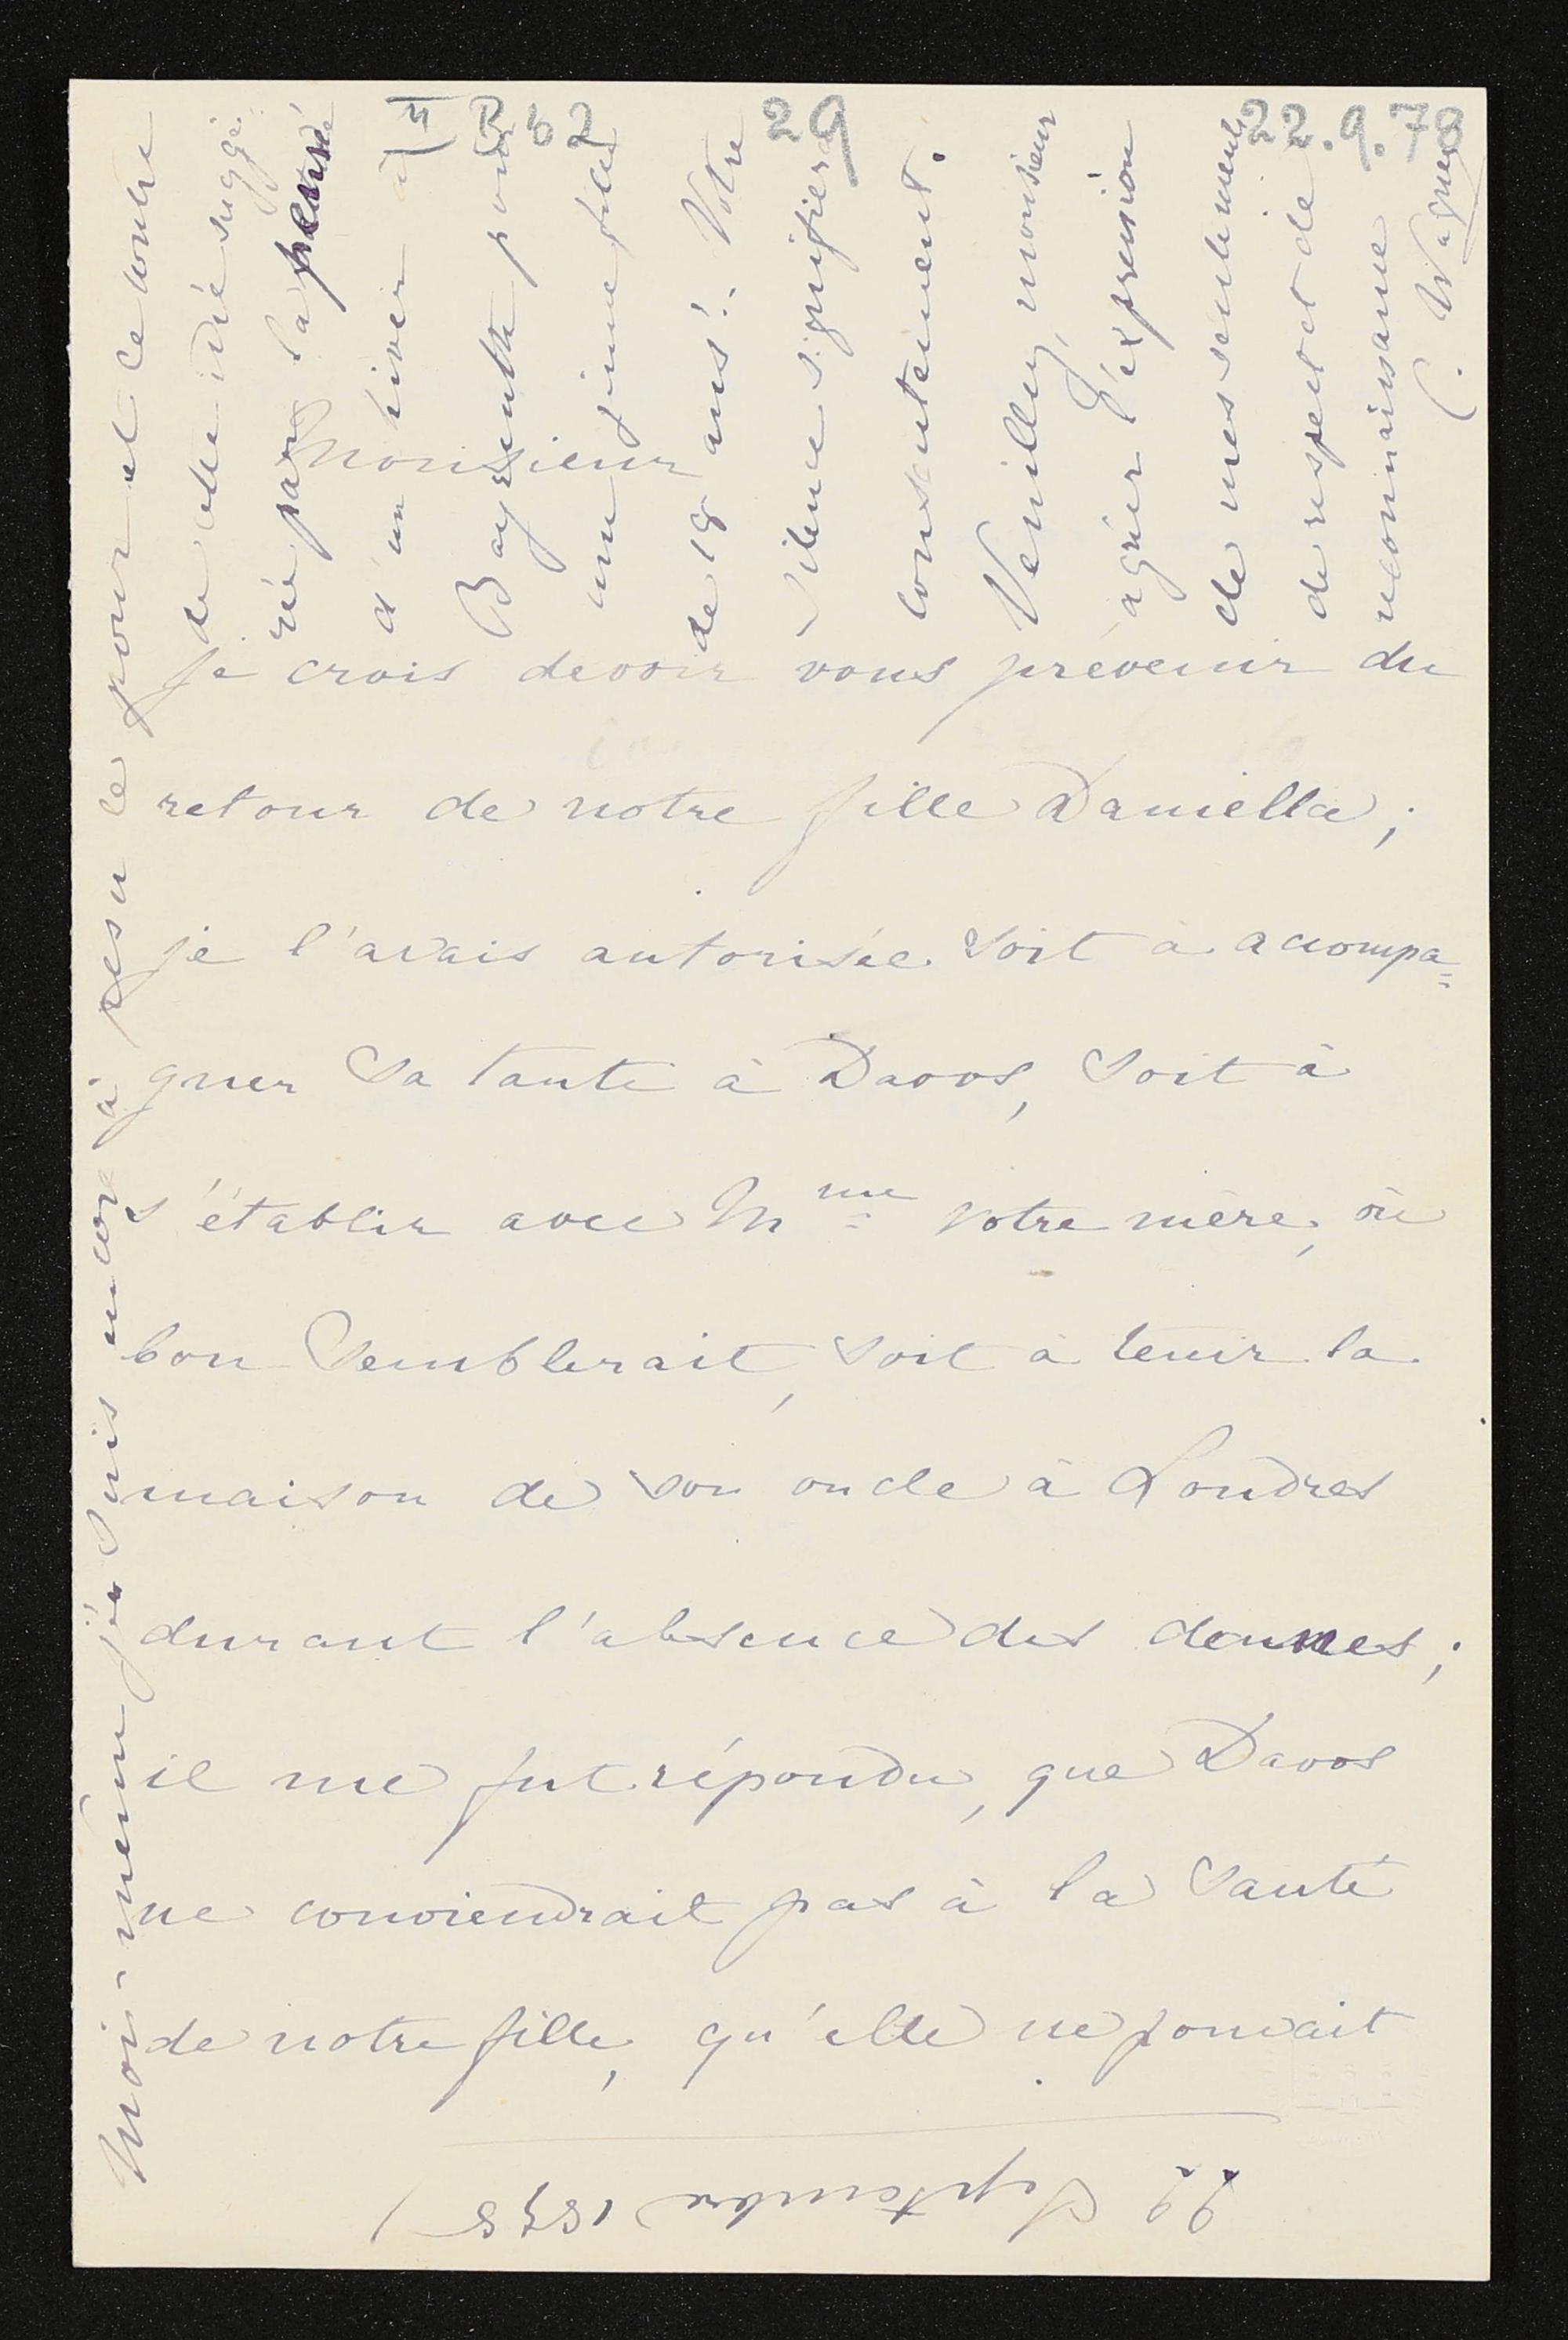 29
22.9.78
Monsieur
je crois devoir vous prévenir du
retour de notre fille Daniella;
je l'avais autorisée soit à accompa=
gner sa tante à Davos, soit à
s'établir avec Mme votre mère, où
bon semblerait, soit à tenir la
maison de son oncle à Londres
durant l'absence des dames;
il me fut répondu, que Davos
ne conviendrait pas à la santé
de notre fille, qu'elle ne pouvait
22 Septembre 1878
Moi-même j'en suis encore à peser le pour et le contre
de cette idée suggé=
rée par la pensée
d'un hiver à
Bayreuth pour
une jeune fille
de 18 ans! Votre
silence signifiera
consentement.
Veuillez, monsieur
agréer l'expression
de mes sentiments
de respect et de
reconnaissance
C. Wagner